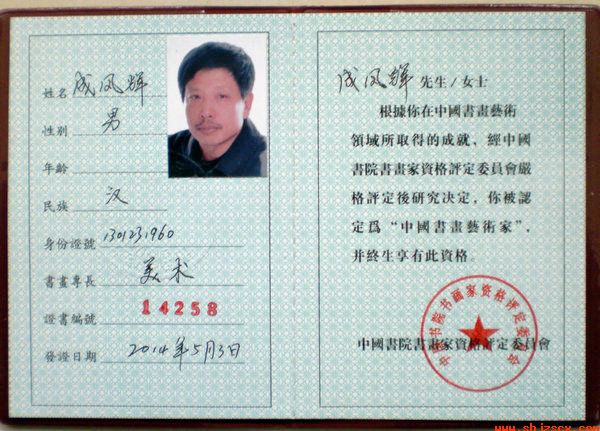 姓名 成凤辉
性别 男
年齡
民族 汉
身份證號 1301231960
書畫專長 美术
證書編號 14258
發證日期 2014年5月3日
成凤辉 先生/女士
根據你在中國書畫藝術
領域所取得的成就，經中國
書院書畫家資格評定委員會嚴
格評定後研究決定，你被認
定爲“中國書畫藝術家”，
并終生享有此資格。
中國書院書畫家資格評定委員會
中国书院书画家资格评定委员会
www.shjzscx.com